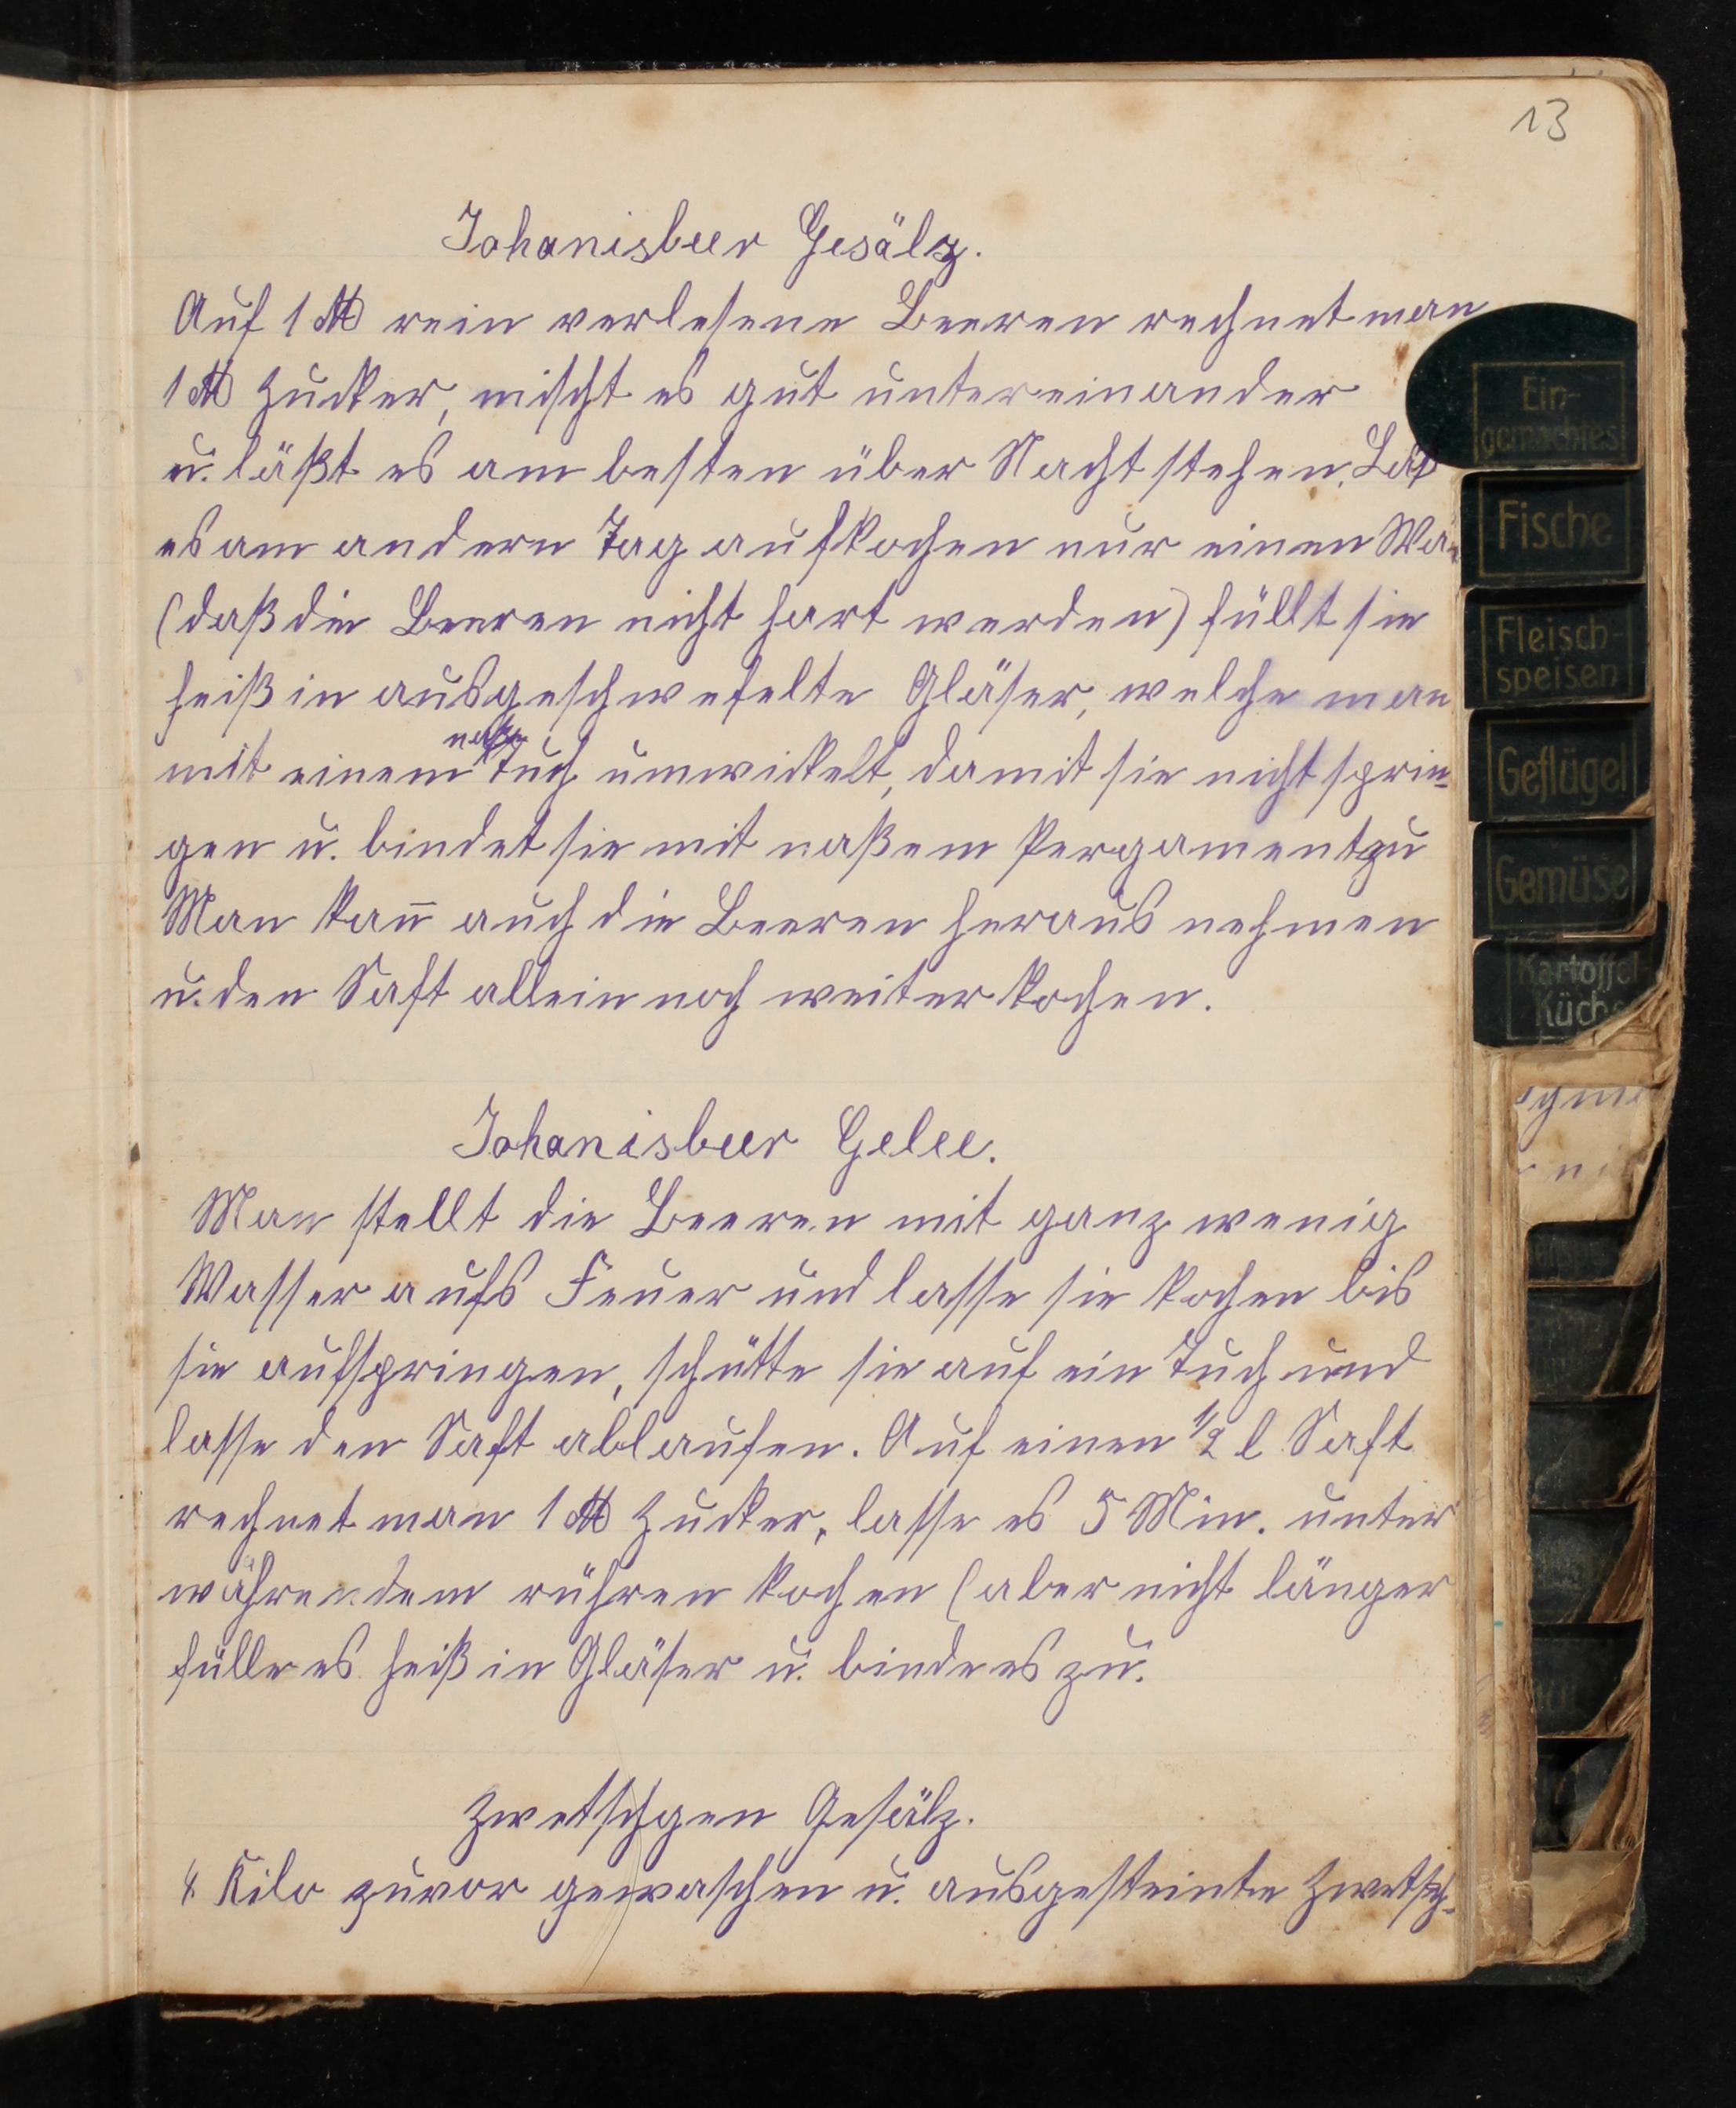 13
Johanisbeer Gesälz.
Auf 1 ℔ rein verlesene Beeren rechnet man
1 ℔ Zucker, mischt es gut untereinander
u. läßt es am besten über Nacht stehen. Läß
es am andern Tag aufkochen nur einen
(daß die Beeren nicht hart werden) füllt sie
heiß in ausgeschwefelte Gläser, welche man
mit einem naßen Tuch umwickelt, damit sie nicht sprin-
gen u. bindet sie mit naßem Pergament zu
Man kan̄ auch die Beeren heraus nehmen
u. den Saft allein noch weiter kochen.
Johanisbeer Gelee.
Man stellt die Beeren mit ganz wenig
Wasser aufs Feuer und lasse sie kochen bis
sie aufspringen, schütte sie auf ein Tuch und
lasse den Saft ablaufen. Auf einen 1/2 l Saft
rechnet man 1 ℔ Zucker, lasse es 5 Min. unter
währendem rühren kochen (aber nicht länger
fülle es heiß in Gläser u. binde es zu.
Zwetschgen Gesälz.
4 Kilo zuvor gewaschen u. ausgesteinte Zwetsch-
Ein-
gemachtes
Fische
Fleisch-
speisen
Geflügel
Gemüse
Kartoffel-
Küche